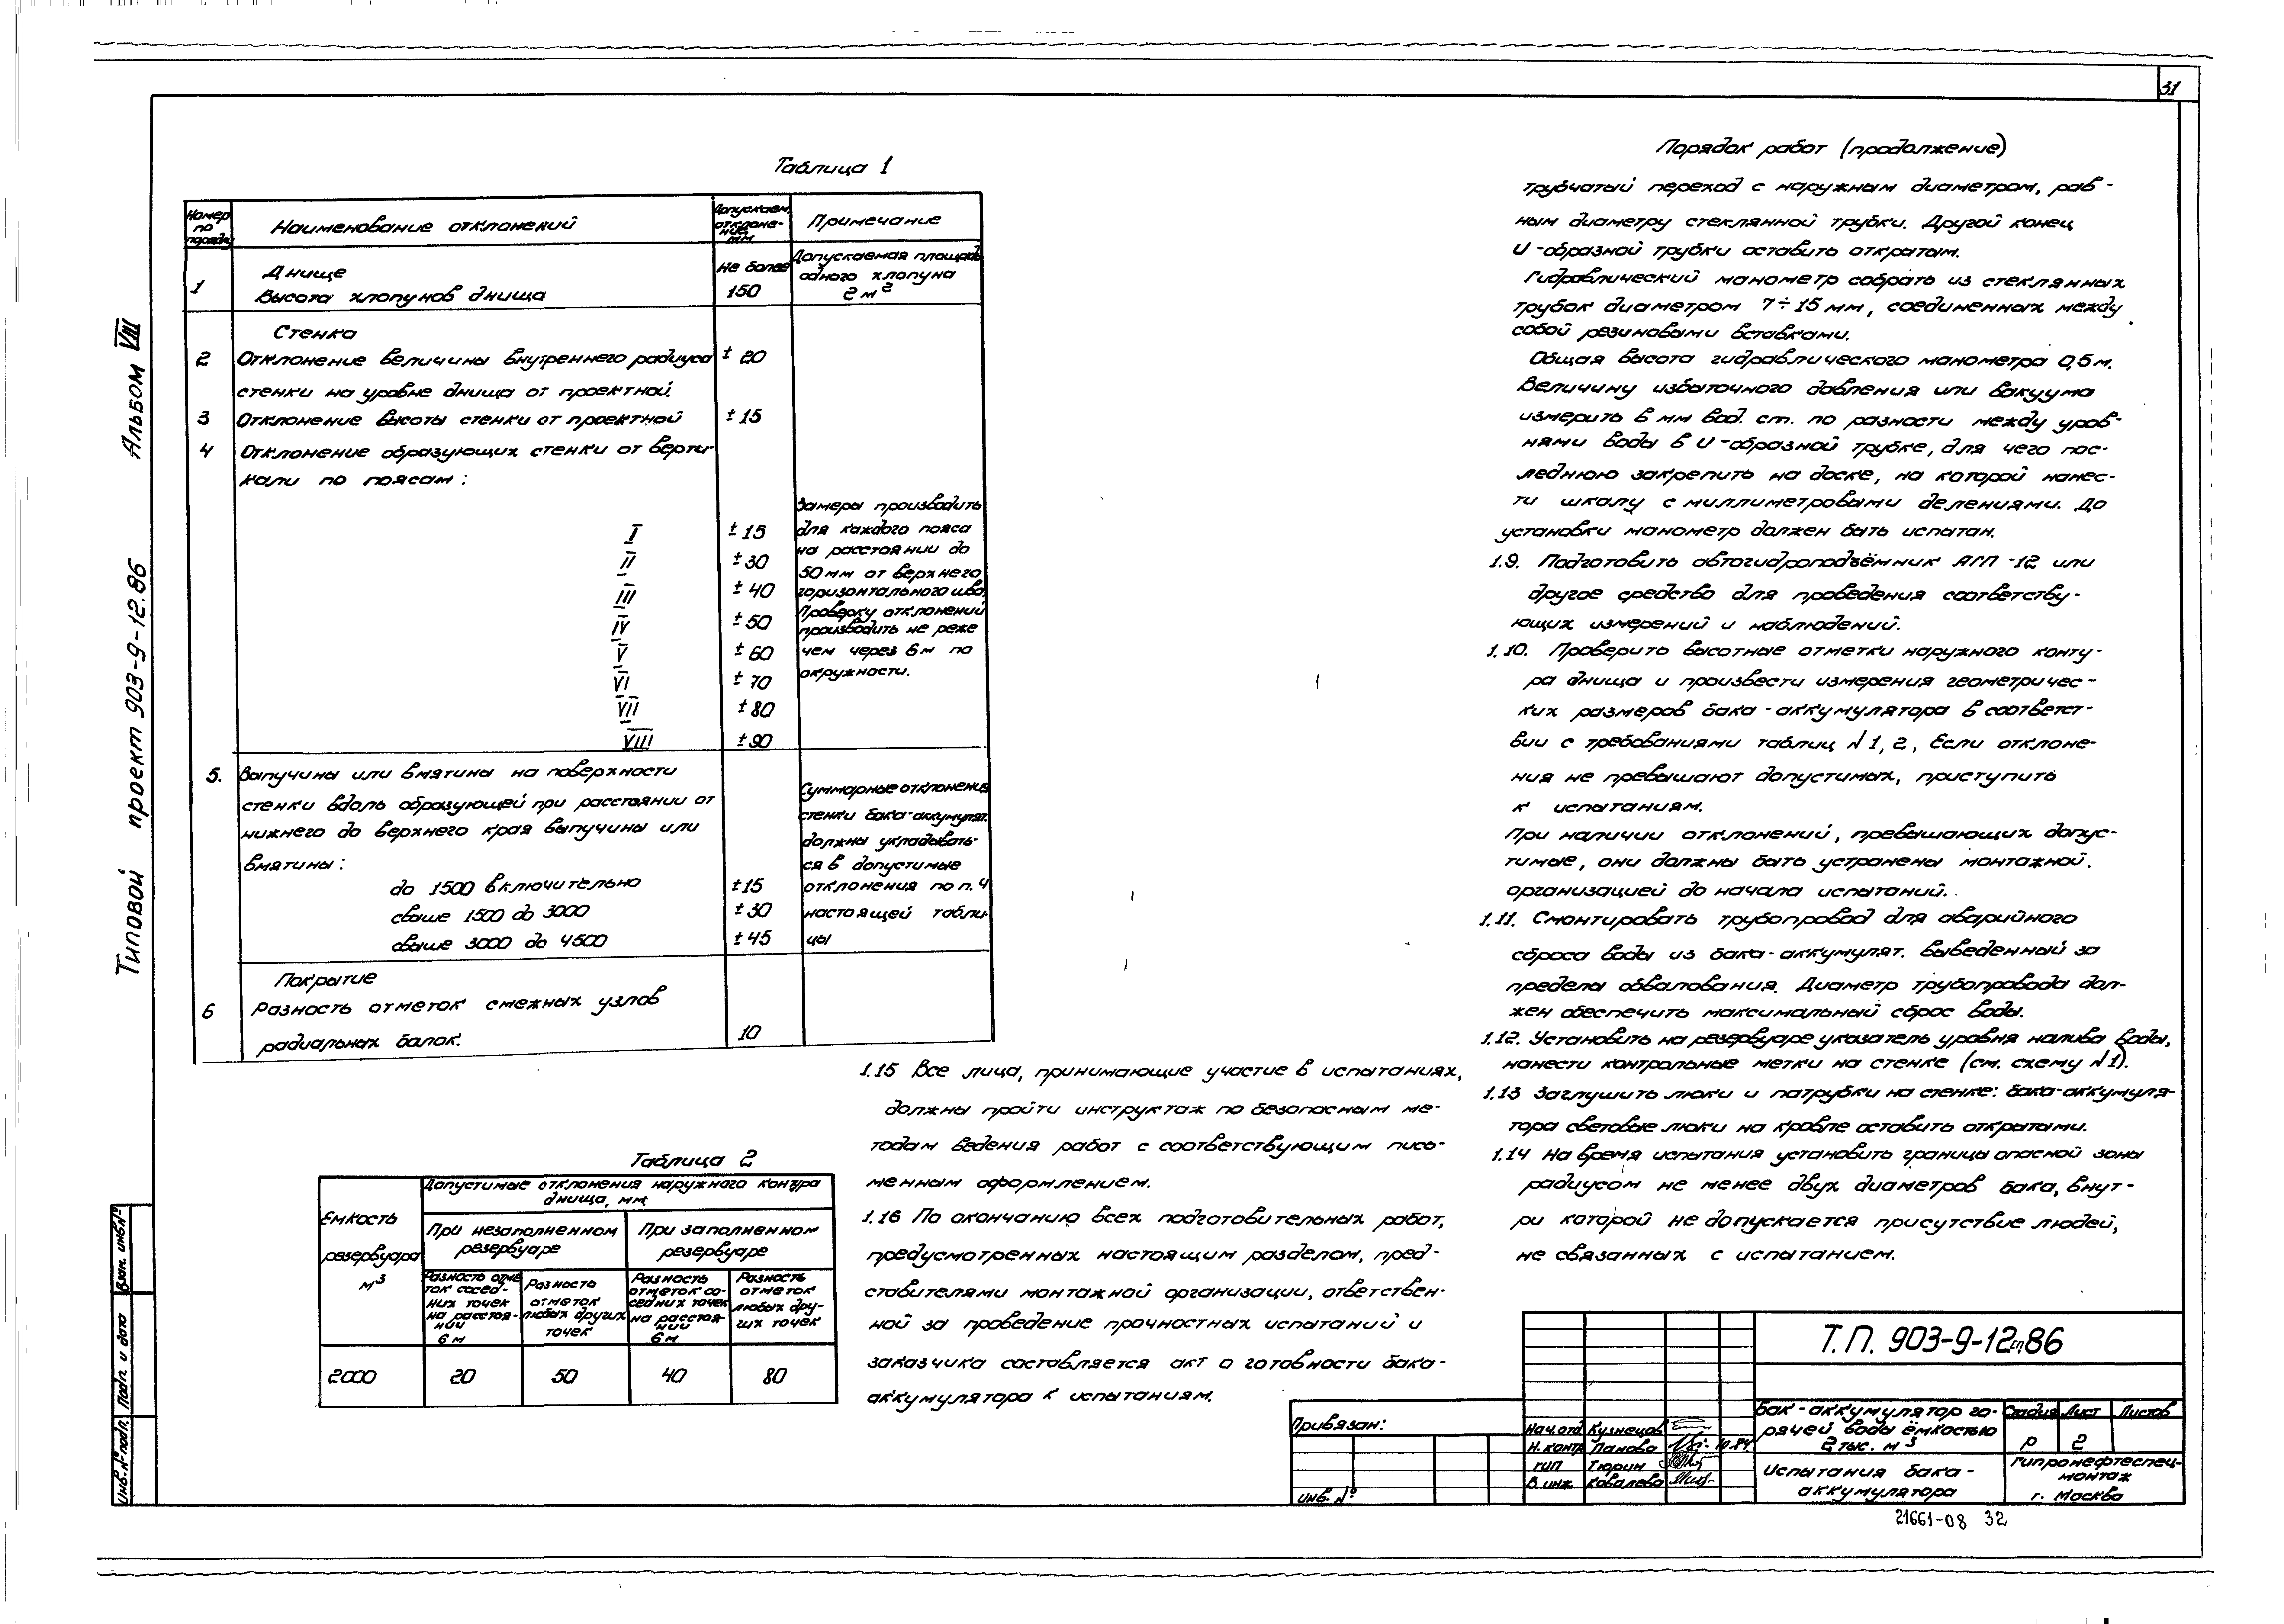 31
Типовой проект 903-9-12.86 Альбом VIII
Таблица 1
Номер по порядку
Наименование отклонений
Допускаем. отклонение мм
Примечание
1
Днище
Высота хлопунов днища
Не более
150
Допускаемая площадь
одного хлопуна
2 м²
Стенка
2 Отклонение величины внутреннего радиуса ± 20
стенки на уровне днища от проектной.
3 Отклонение высоты стенки от проектной ± 15
4 Отклонение образующих стенки от верти-
кали по поясам:
I ± 15
II ± 30
III ± 40
IV ± 50
V ± 60
VI ± 70
VII ± 80
VIII ± 90
Замеры производить
для каждого пояса
на расстоянии до
50мм от верхнего
горизонтального шва.
Проверку отклонений
производить не реже
чем через 6м по
окружности.
5. Выпучины или вмятины на поверхности
стенки вдоль образующей при расстоянии от
нижнего до верхнего края выпучины или
вмятины:
до 1500 включительно ± 15
свыше 1500 до 3000 ± 30
свыше 3000 до 4500 ± 45
Суммарные отклонения
стенки бака-аккумулят.
должны укладывать-
ся в допустимые
отклонения по п. 4
настоящей табли-
цы
Покрытие
6 Разность отметок смежных узлов
радиальных балок. 10
Таблица 2
Емкость
резервуара
м³
Допустимые отклонения наружного контура
днища, мм
При незаполненном
резервуаре
При заполненном
резервуаре
Разность отме-
ток сосед-
них точек
на расстоя-
нии
6 м
Разность
отметок
любых других
точек
Разность
отметок со-
седних точек
на расстоя-
нии
6 м
Разность
отметок
любых дру-
гих точек
2000 20 50 40 80
1.15 Все лица, принимающие участие в испытаниях,
должны пройти инструктаж по безопасным ме-
тодам ведения работ с соответствующим пись-
менным оформлением.
1.16 По окончанию всех подготовительных работ,
предусмотренных настоящим разделом, пред-
ставителями монтажной организации, ответствен-
ной за проведение прочностных испытаний и
заказчика составляется акт о готовности бака-
аккумулятора к испытаниям.
Порядок работ (продолжение)
трубчатый переход с наружным диаметром, рав-
ным диаметру стеклянной трубки. Другой конец
U-образной трубки оставить открытым.
Гидравлический манометр собрать из стеклянных
трубок диаметром 7÷15 мм, соединенных между
собой резиновыми вставками.
Общая высота гидравлического манометра 0,5 м.
Величину избыточного давления или вакуума
измерить в мм вод. ст. по разности между уров-
нями воды в U-образной трубке, для чего пос-
леднюю закрепить на доске, на которой нанес-
ти шкалу с миллиметровыми делениями. До
установки манометр должен быть испытан.
1.9. Подготовить автогидроподъёмник АГП-12 или
другое средство для проведения соответству-
ющих измерений и наблюдений.
1.10. Проверить высотные отметки наружного конту-
ра днища и произвести измерения геометричес-
ких размеров бака-аккумулятора в соответст-
вии с требованиями таблиц N 1, 2, Если отклоне-
ния не превышают допустимых, приступить
к испытаниям.
При наличии отклонений, превышающих допус-
тимые, они должны быть устранены монтажной.
организацией до начала испытаний.
1.11. Смонтировать трубопровод для аварийного
сброса воды из бака-аккумулят. выведенный за
пределы обвалования. Диаметр трубопровода дол-
жен обеспечить максимальный сброс воды.
1.12. Установить на резервуаре указатель уровня налива воды,
нанести контрольные метки на стенке (см. схему N 1).
1.13 Заглушить люки и патрубки на стенке: бака-аккумуля-
тора световые люки на кровле оставить открытыми.
1.14 На время испытания установить границы опасной зоны
радиусом не менее двух диаметров бака, внут-
ри которой не допускается присутствие людей,
не связанных с испытанием.
Взам. инв.№
Подп. и дата
Инв.№ подл.
Привязан:
инв. №
Т.П. 903-9-12сп.86
Нач.отд Кузнецов
Н.контр. Панова 10.84
ГИП Тюрин
В. инж. Ковалева
Бак-аккумулятор го-
рячей воды ёмкостью
2 тыс. м³
Стадия Лист Листов
Р 2
Испытания бака-
аккумулятора
Гипронефтеспец-
монтаж
г. Москва
21661-08 32